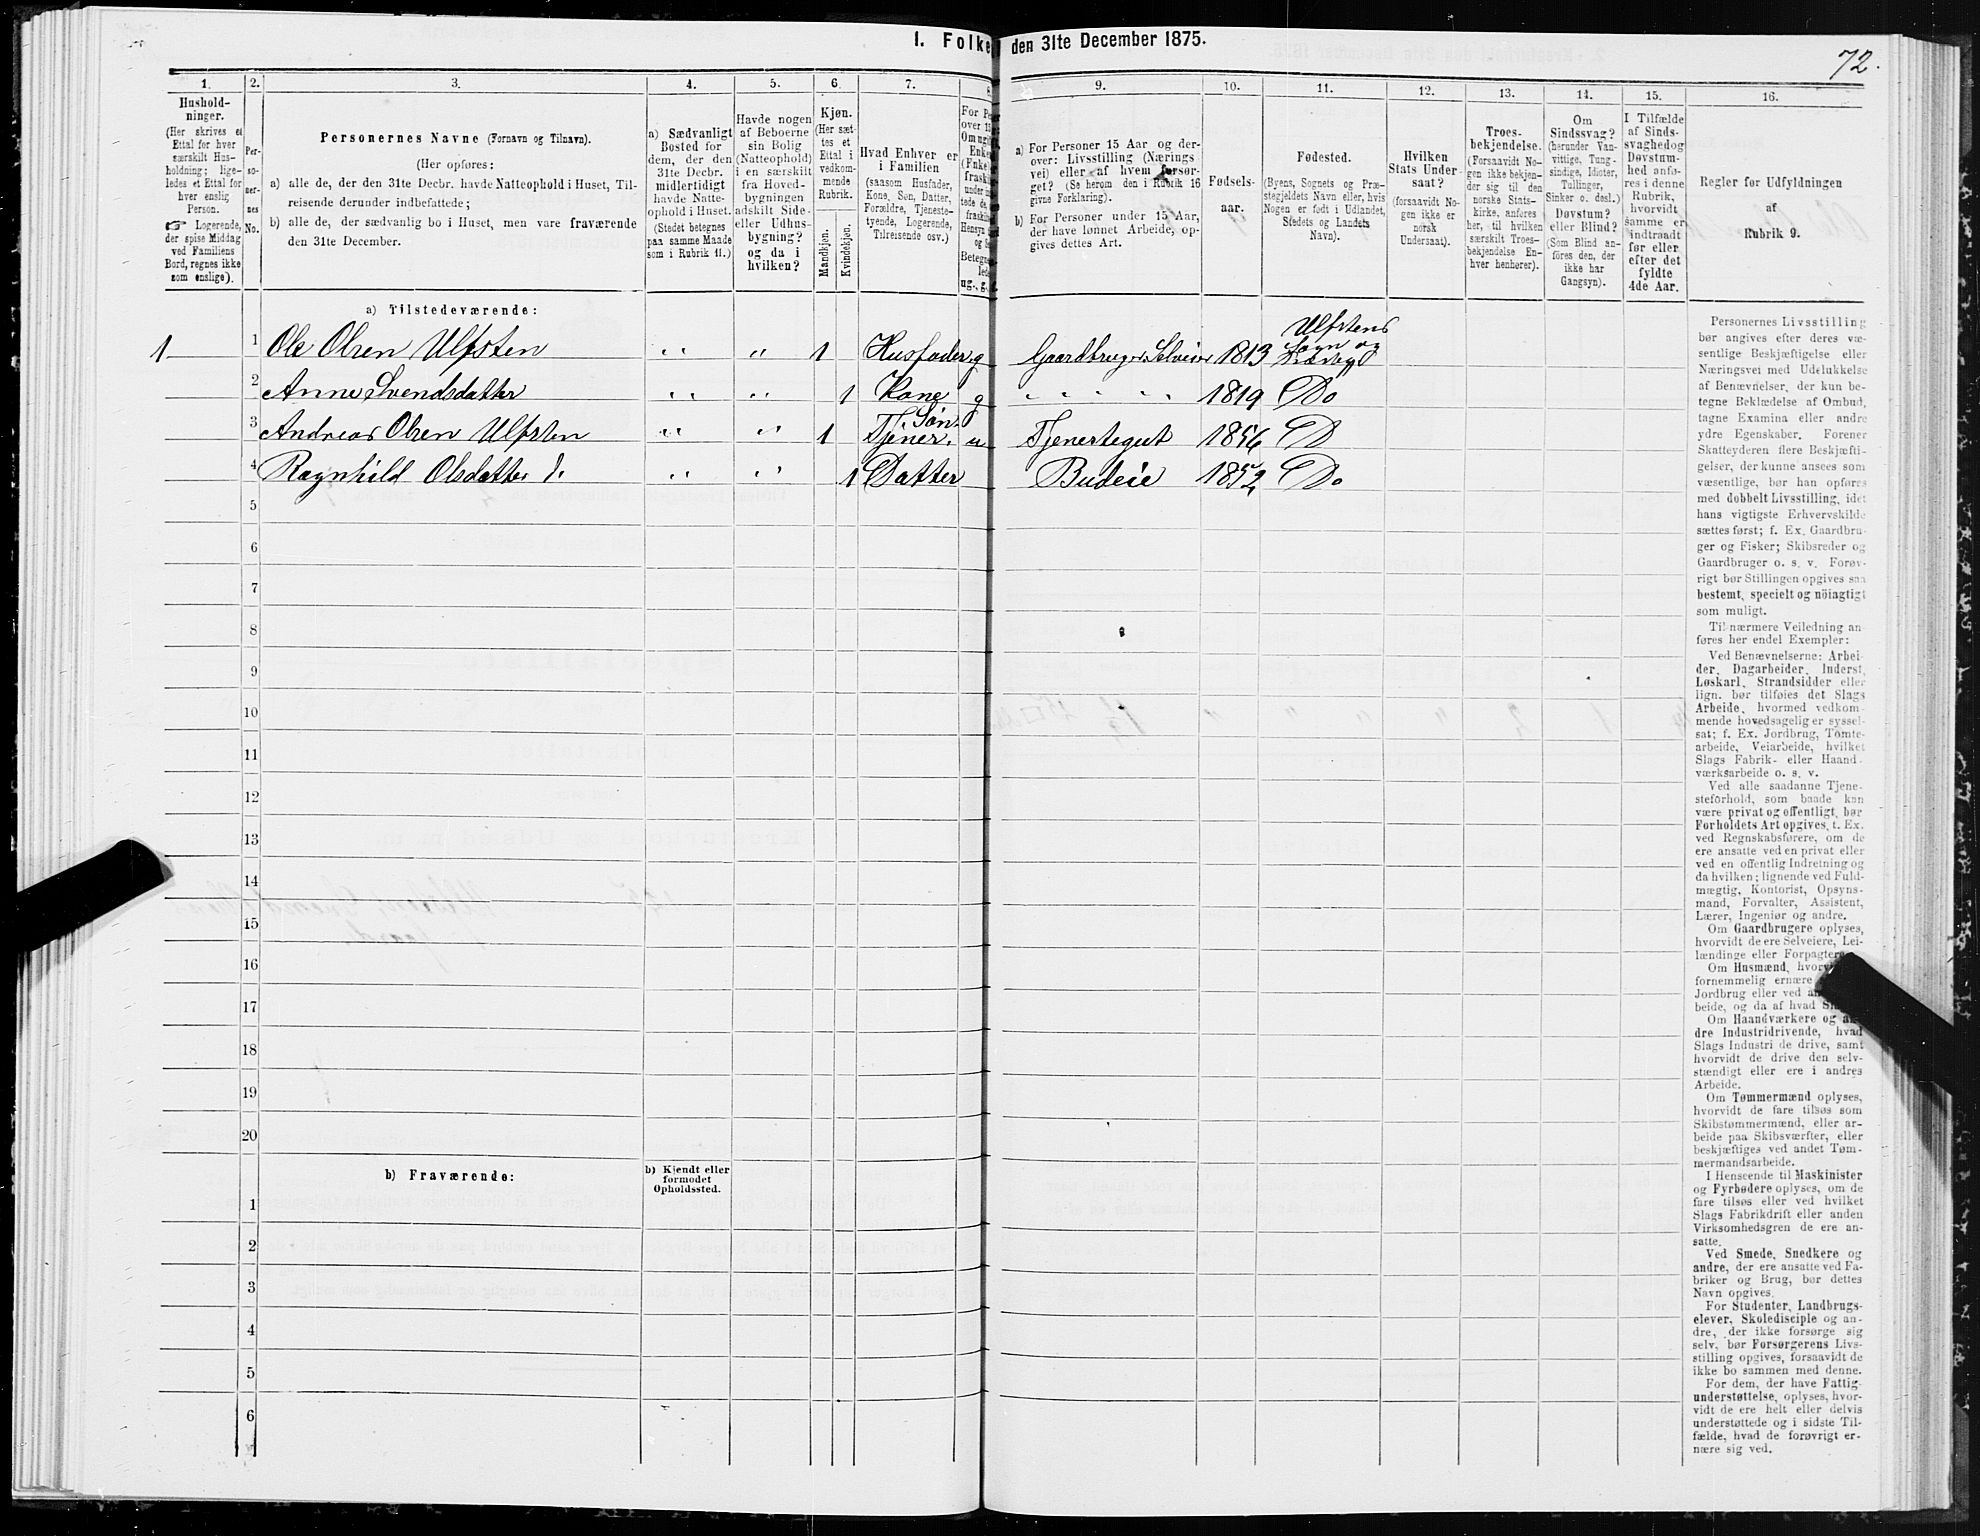 1. Folke den 31te December 1875.
72.
1. 2. 3. 4. 5. 6. 7. 8. 9. 10. 11. 12. 13. 14. 15. 16.
Hushold-
ninger.
(Her skrives et
Ettal for hver
særskilt Hus-
holdning; lige-
ledes et Ettal for
hver enslig
Person.
☞ Logerende,
der spise Middag
ved Familiens
Bord, regnes ikke
som enslige).
Per-
so-
ner-
nes
No.
Personernes Navne (Fornavn og Tilnavn).
(Her opføres:
a) alle de, der den 31te Decbr. havde Natteophold i Huset, Til-
reisende derunder indbefattede;
b) alle de, der sædvanlig bo i Huset, men vare fraværende
den 31te December.
a) Sædvanligt
Bosted for
dem, der den
31te Decbr.
midlertidigt
havde Natte-
ophold i Huset.
(Stedet betegnes
paa samme Maade
som i Rubrik 11.)
Havde nogen
af Beboerne
sin Bolig
(Natteophold)
i en særskilt
fra Hoved-
bygningen
adskilt Side-
eller Udhus-
bygning?
og da i
hvilken?
Kjøn.
(Her sæt-
tes et
Ettal i
vedkom-
mende
Rubrik.
Mandkjøn.
Kvindekjøn.
Hvad Enhver er
i Familien
(saasom Husfader,
Kone, Søn, Datter,
Forældre, Tjeneste-
tyende, Logerende,
Tilreisende osv.)
For Pe
over 1
Om ugi
Enke
(Enke
frask
under
tede de,
fraski
Hensyn
og S
Betegn
led
ug., g.,
a) For Personer 15 Aar og der-
over: Livsstilling (Nærings
vei) eller af hvem forsør-
get? (Se herom den i Rubrik 16
givne Forklaring).
b) For Personer under 15 Aar,
der have lønnet Arbeide, op-
gives dettes Art.
Fødsels-
aar.
Fødested.
(Byens, Sognets og Præ-
stegjeldets Navn eller, hvis
Nogen er født i Udlandet,
Stedets og Landets
Navn).
Hvilken
Stats Under-
saat?
(forsaavidt No-
gen ikke er
norsk
Undersaat).
Troes-
bekjendelse.
(Forsaavidt No-
gen ikke bekjen-
der sig til den
norske Stats-
kirke, anføres
her, til hvilken
særskilt Troes-
bekjendelse En-
hver henhører).
Om
Sindssvag?
(herunder Van-
vittige, Tung-
sindige, Idioter,
Tullinger,
Sinker o. desl.)
Døvstum?
eller Blind?
(Som Blind an-
føres den, der
ikke har
Gangsyn).
I Tilfælde
af Sinds-
svaghed og
Døvstum-
hed anfø-
res i denne
Rubrik,
hvorvidt
samme er
indtraadt
før eller
efter det
fyldte
4de Aar.
Regler for Udfyldningen
af
Rubrik 9.
a) Tilstedeværende:
1 1 Ole Olsen Ulfsten " " 1 Husfader g Gaardbruger Selveier 1813 Ulfstens Sogn og
2 Anne Svendsdatter " " 1 Kone g " " " " " 1819 Do
3 Andreas Olsen Ulfsten " " 1 Søn Tjener. u Tjenestegut 1856 D
4 Ragnhild Olsdatter " " 1 Datter Budeie 1852 Do
5
6
7
8
9
10
11
12
13
14
15
16
17
18
19
20
b) Fraværende:
b) Kjendt eller
formodet
Opholdssted.
1
2
3
4
5
6
Personernes Livsstilling
bør angives efter deres væ-
sentlige Beskjæftigelse eller
Næringsvei med Udelukkelse
af Benævnelser, der kun be-
tegne Beklædelse af Ombud,
tagne Examina eller andre
ydre Egenskaber. Forener
Skatteyderen flere Beskjæfti-
gelser, der kunne ansees som
væsentlige, bør han opføres
med dobbelt Livsstilling, idet
hans vigtigste Erhvervskilde
sættes først; f. Ex. Gaardbru-
ger og Fisker; Skibsreder og
Gaardbruger o. s. v. Forøv-
rigt bør Stillingen opgives saa
bestemt, specielt og nöiagtigt
som muligt.
Til nærmere Veiledning an-
føres her endel Exempler:
Ved Benævnelserne: Arbei-
der, Dagarbeider, Inderst,
Løskarl, Strandsidder eller
lign. bør tilføies det Slags
Arbeide, hvormed vedkom-
mende hovedsagelig er syssel-
sat; f. Ex. Jordbrug, Tømte-
arbeide, Veiarbeide, hvilket
Slags Fabrik- eller Haand
værksarbeide o. s. v.
Ved alle saadanne Tjene-
steforhold, som baade kan
være privat og offentligt, bør
Forholdets Art opgives, t. Ex.
ved Regnskabsførere, om de
ere ansatte ved en privat eller
ved en offentlig Indretning og
da hvilken; lignende ved Fuld-
mægtig, Kontorist, Opsyns-
mand, Forvalter, Assistent,
Lærer, Ingeniør og andre.
Om Gaardbrugere oplyses,
hvorvidt de ere Selveiere, Lei-
lændinge eller Forpagtere
Om Husmænd, hvorv
fornemmelig ernære
Jordbrug eller ved a
beide, og da af hvad
Om Haandværkere og an-
dre Industridrivende, hvad
Slags Industri de drive, samt
hvorvidt de drive den selv-
stændigt eller ere i andres
Arbeide.
Om Tømmermænd oplyses,
hvorvidt de fare tilsøs som
Skibstømmermænd, eller ar-
beide paa Skibsværfter, eller
beskjæftiges ved andet Tøm-
mermandsarbeide.
I Henseende til Maskinister
og Fyrbødere oplyses, om de
fare tilsøs eller ved hvilket
Slags Fabrikdrift eller anden
Virksomhedsgren de ere an-
satte.
Ved Smede, Snedkere og
andre, der ere ansatte ved Fa-
briker og Brug, bør dettes
Navn opgives.
For Studenter, Landbrugs-
elever, Skoledisciple og an-
dre, der ikke forsørge sig
selv, bør Forsørgerens Livs-
stilling opgives, forsaavidt de
ikke bo sammen med denne.
For dem, der have Fattig-
understøttelse, oplyses, hvor-
vidt de ere helt eller delvis
understøttede og i sidste Til-
fælde, hvad de forøvrigt er-
nære sig ved.